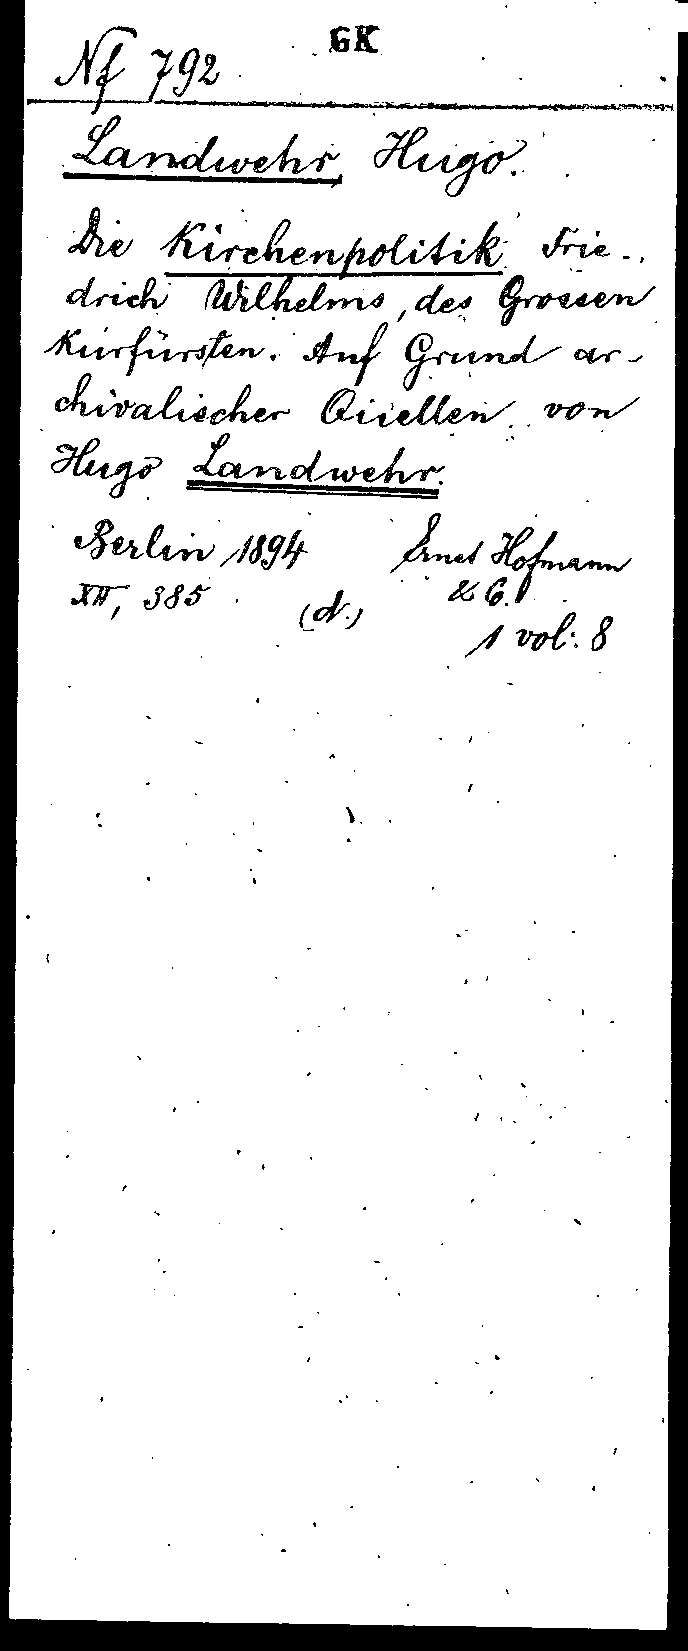 GK
Nf 792
Landwehr, Hugo.
Die Kirchenpolitik Frie-
drich Wilhelms, des Grossen
Kurfürsten. Auf Grund ar-
chivalischer Quellen von
Hugo Landwehr.
Berlin 1894 Ernst Hofmann
& C.
XII, 385 (N.)
1 vol. 8